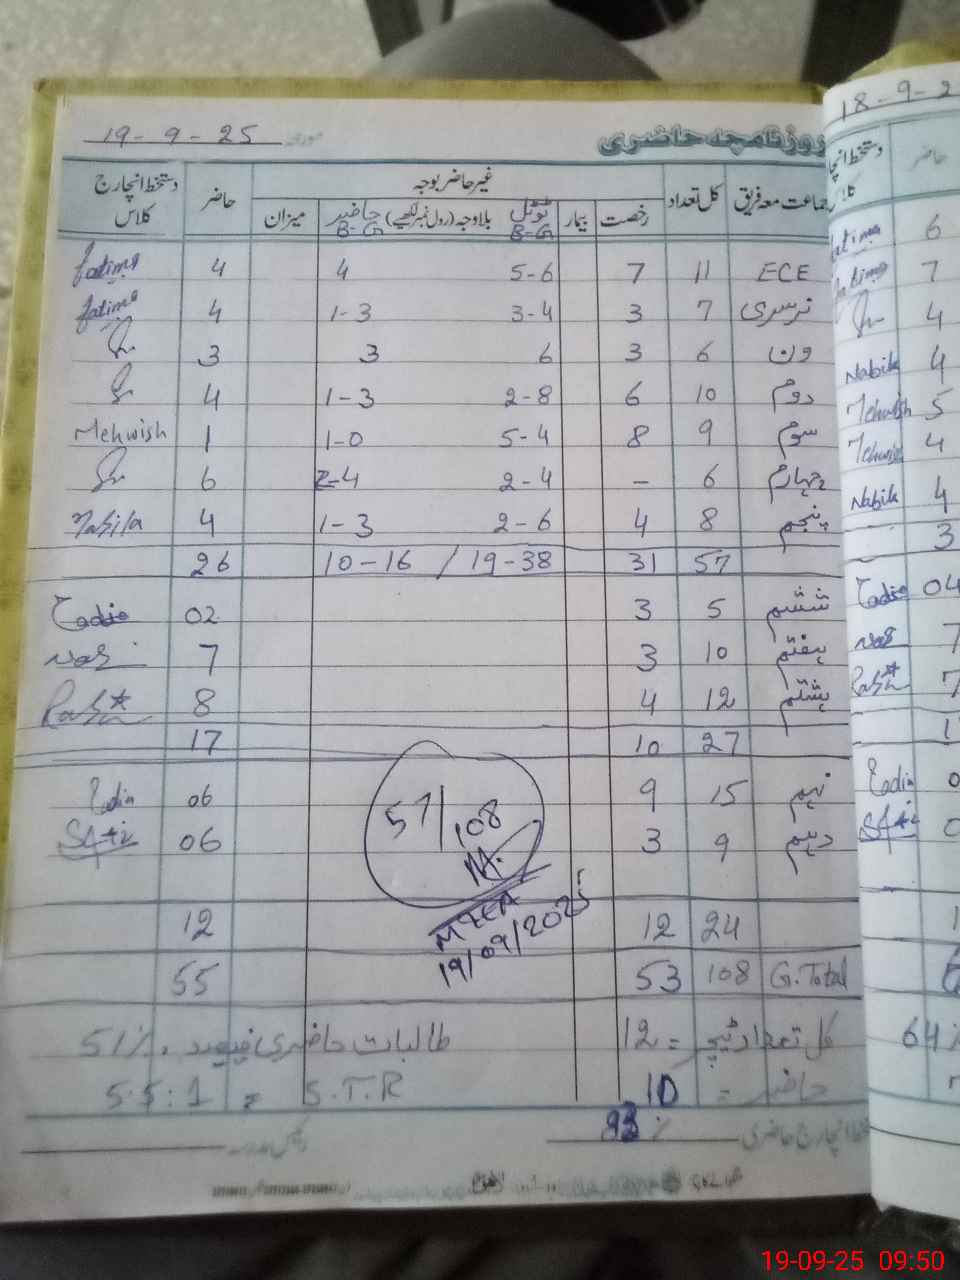 روزنامچہ حاضری مورخہ 19-9-25
جماعت معہ فریق کل تعداد غیر حاضر بوجہ حاضر دستخط انچارج کلاس
رخصت بیمار ٹوٹل B-G بلاوجہ (رول نمبر لکھیے) حاضر B-G میزان
ECE 11 7 5-6 4 4 fatima
نرسری 7 3 3-4 1-3 4 fatima
ون 6 3 6 3 3
دوم 10 6 2-8 1-3 4
سوم 9 8 5-4 1-0 1 Mehwish
چہارم 6 - 2-4 2-4 6
پنجم 8 4 2-6 1-3 4 Nabila
57 31 10-16 / 19-38 26
ششم 5 3 02
ہفتم 10 3 7
ہشتم 12 4 8
27 10 17
نہم 15 9 06
دہم 9 3 06
57/108
M.
MEA
19/09/2025
24 12 12
G.Total 108 53 55
کل تعداد ٹیچر = 12 طالبات حاضری فیصد 51%
حاضر = 10 S.T.R = 5.5:1
دستخط انچارج حاضری % رئیس مدرسہ
18-9-2
دستخط انچارج کلاس حاضر
fatima 6
fatima 7
4
Nabila 4
Mehwish 5
Mehwish 4
Nabila 4
3
04
7
7
64%
19-09-25 09:50